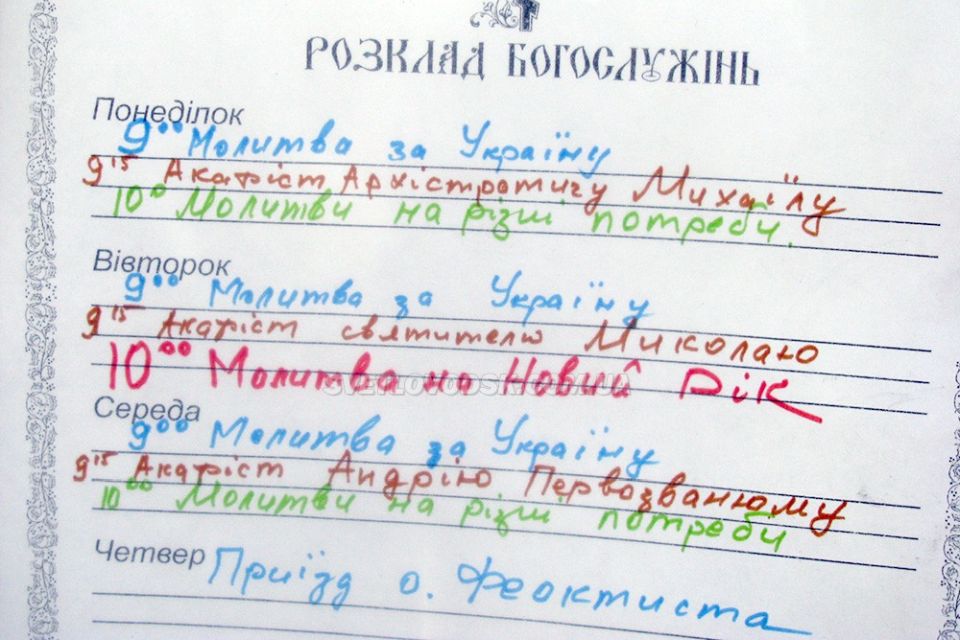 РОЗКЛАД БОГОСЛУЖІНЬ
Понеділок
9⁰⁰ Молитва за Україну
9¹⁵ Акафіст Архістратигу Михаїлу
10⁰ Молитви на різні потреби.
Вівторок
9⁰⁰ Молитва за Україну
9¹⁵ Акафіст святителю Миколаю
10⁰⁰ Молитва на Новий Рік
SVETLOVODSK.COM.UA
Середа
9⁰⁰ Молитва за Україну
9¹⁵ Акафіст Андрію Первозванному
10⁰⁰ Молитви на різні потреби
Четвер Приїзд о. Феоктиста